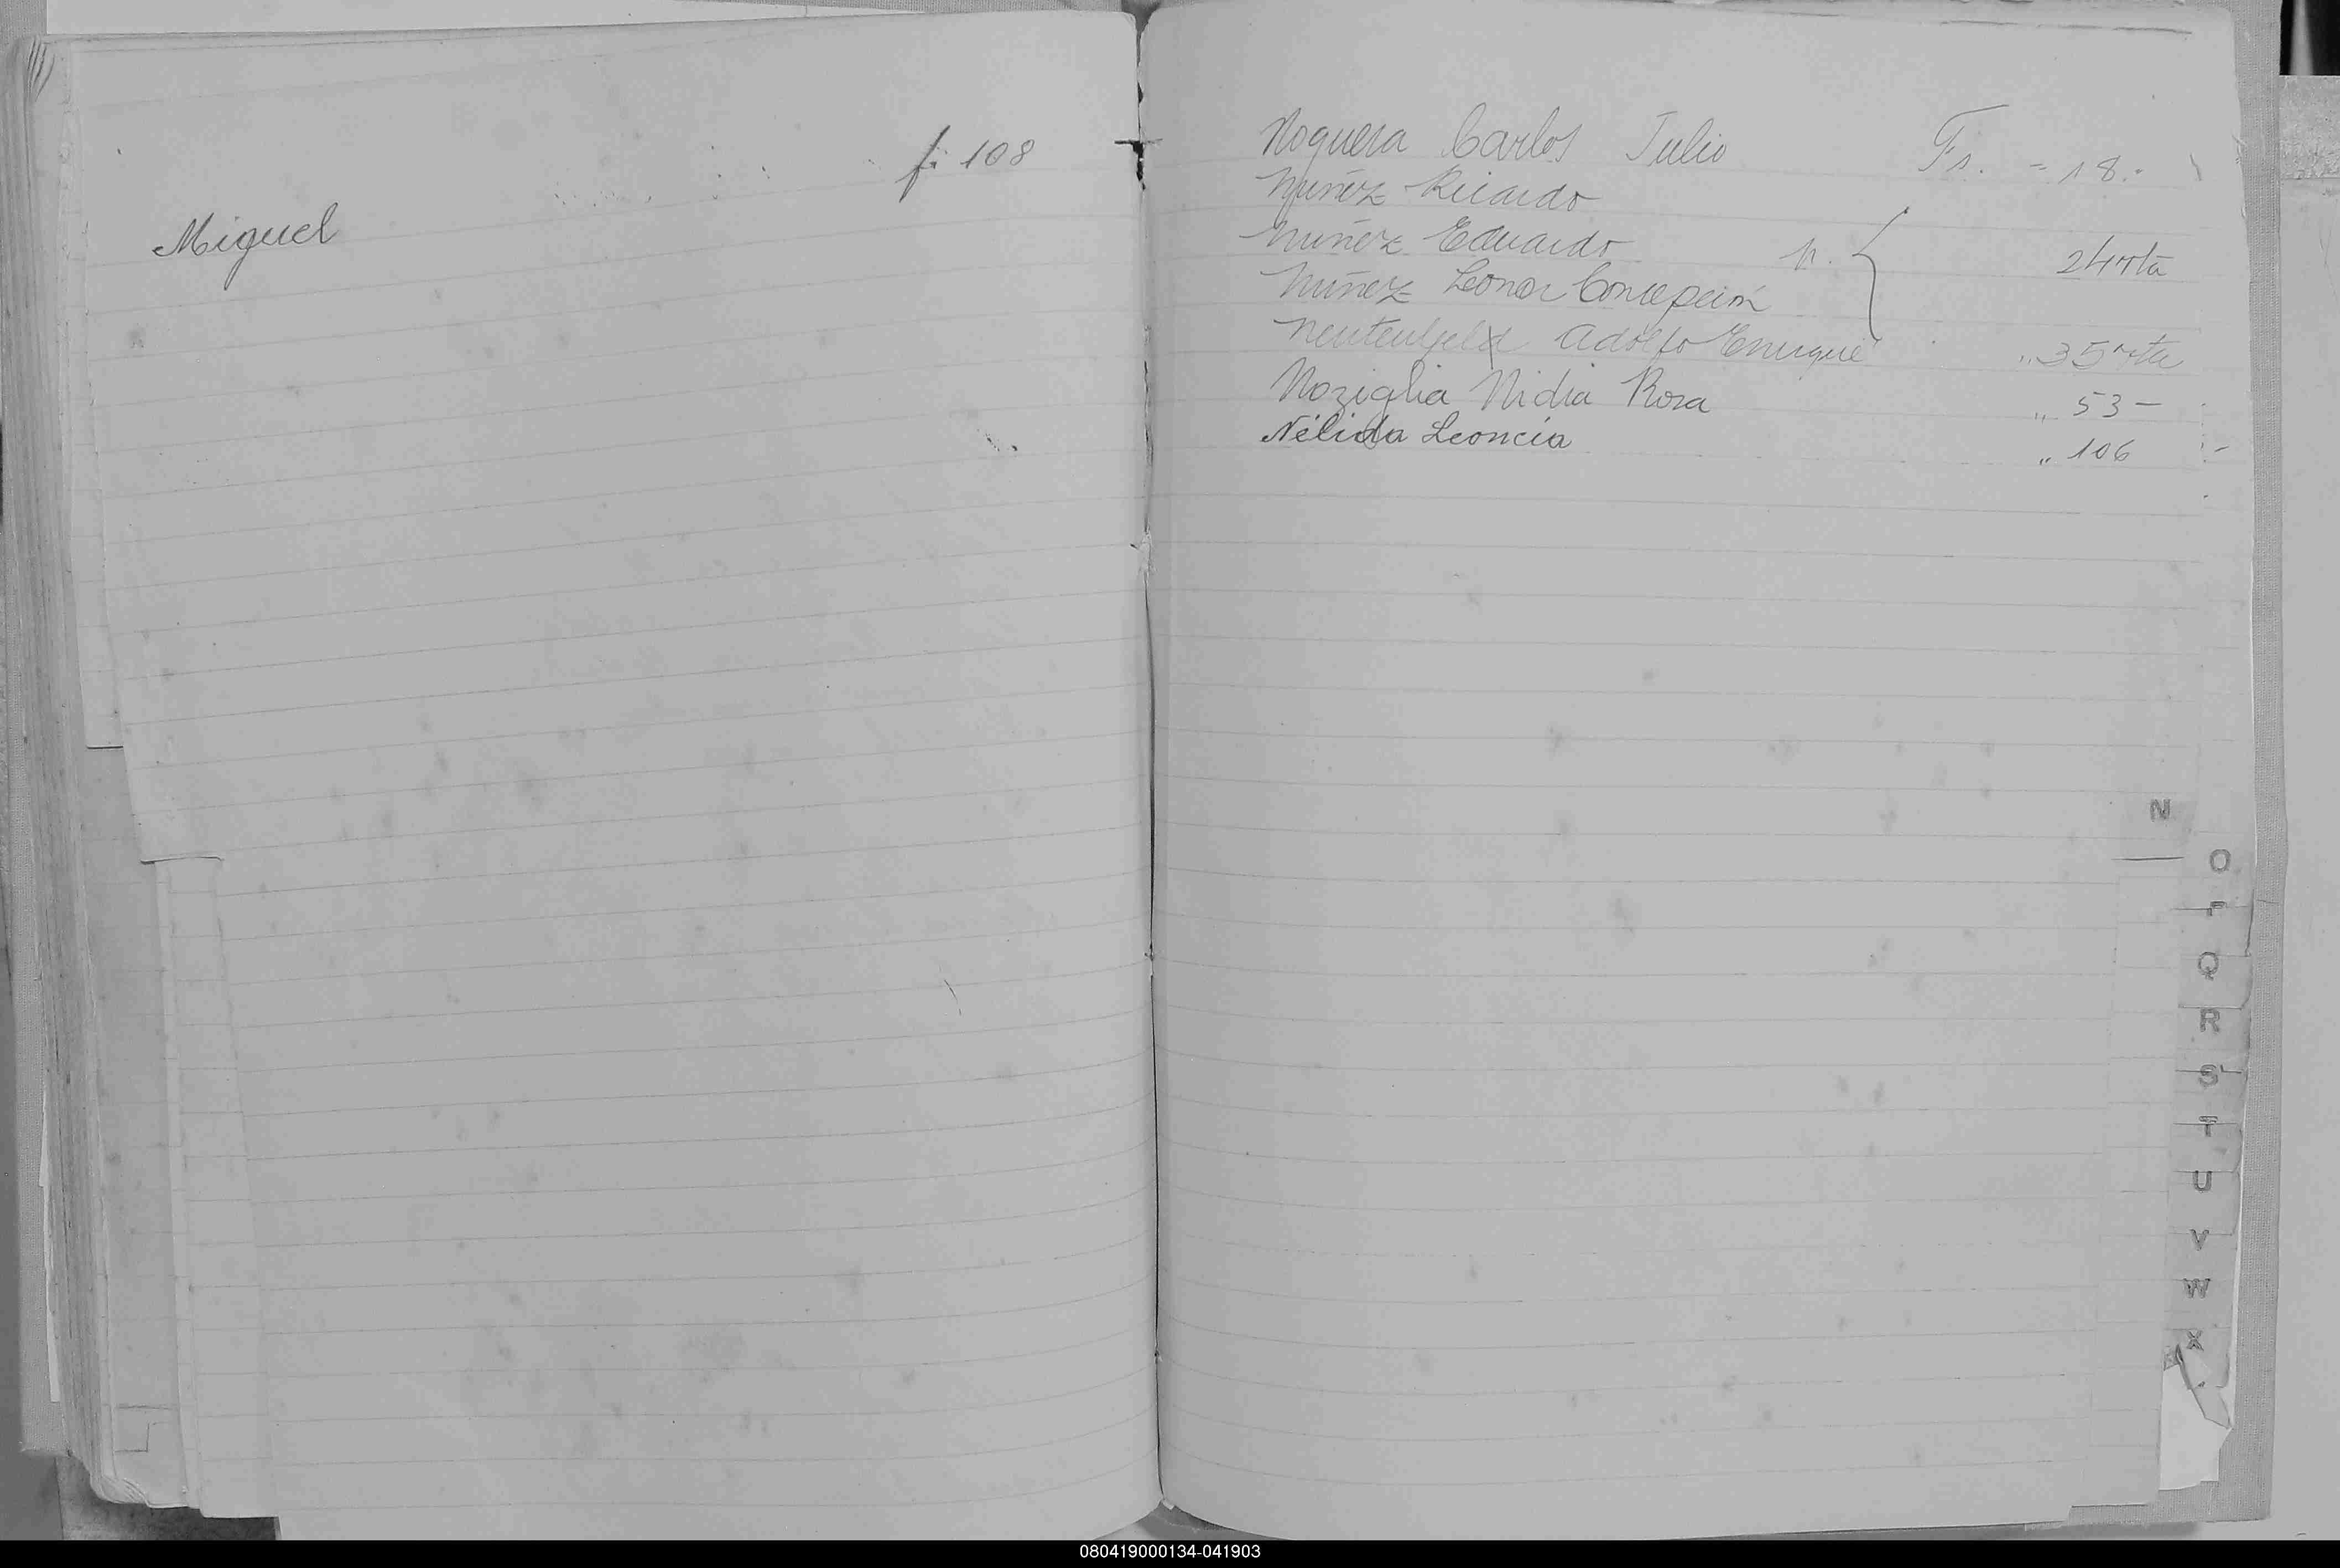 f. 108
Miguel
Noguera Carlos Julio Fs. = 18.-
Nuñez Ricardo
Nuñez Eduardo n. { 24 vta
Nuñez Leonor Concepción
Adolfo Enrique " 35 vta
Noziglia Nidia Rosa " 53 -
Nélida Leoncia " 106
N
O
P
Q
R
S
T
U
V
W
X
080419000134-041903